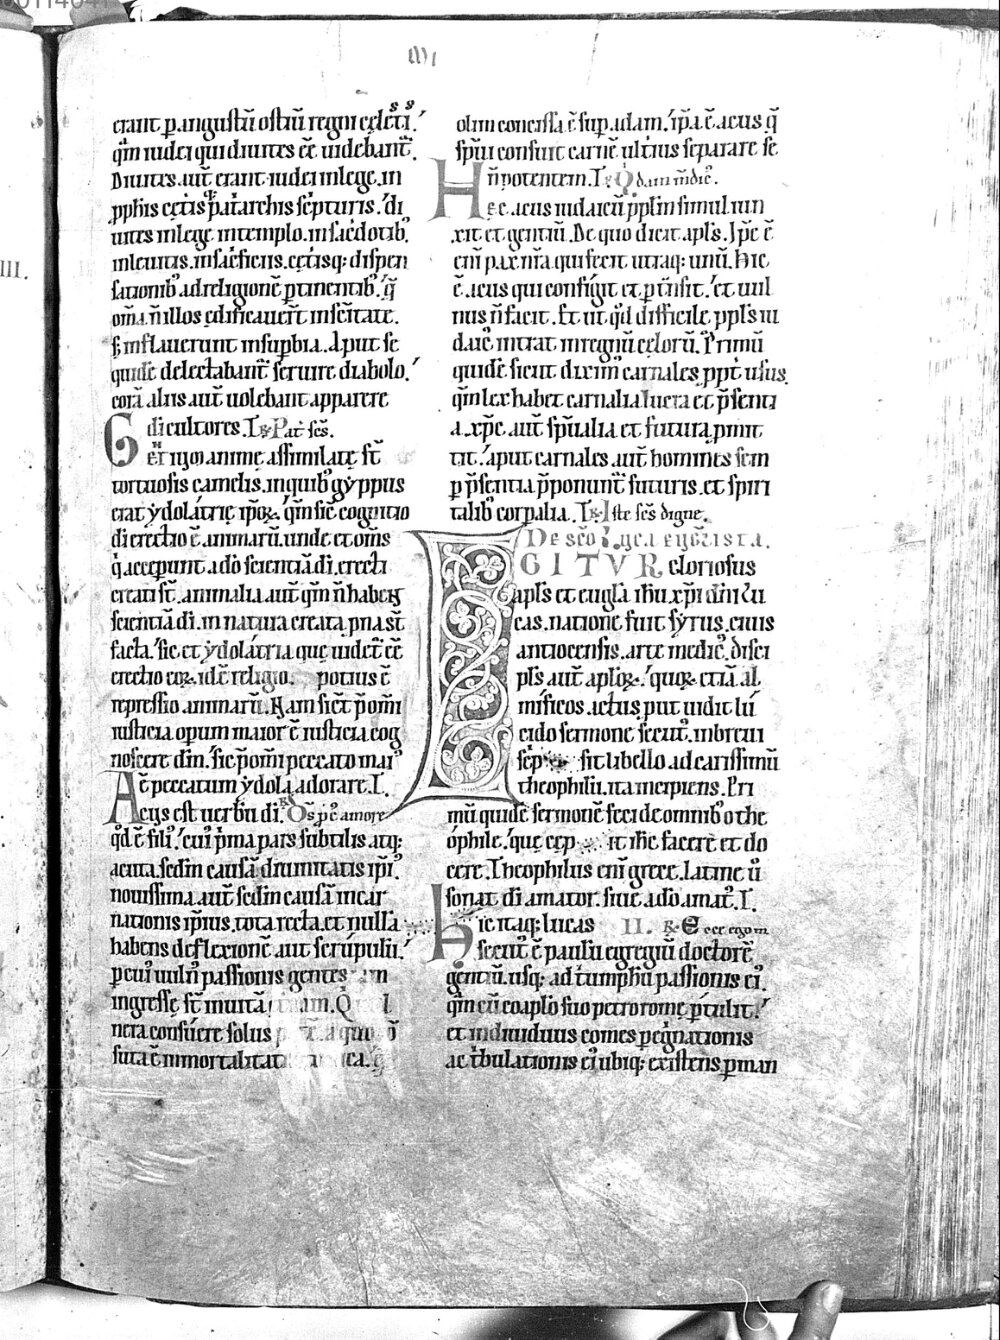 erant p angustū ostiū regni cęlesti.
qm̄ iudei qui diuites eē uidebant̄.
Diuites aut̄ erant iudei in lege. in
pph̄is cęt̄is patriarchis sc̄pturis. di
uites in lege. in templo. in sac̄dotib;
in leuitis. in sac̄ficiis. cęt̄isq; dispen
sationib; ad religionē ptinentib;. q̄
om̄a n̄ illos ędificauer̄t in sc̄itate.
s; inflauerunt in supbia. Aput se
quidē delectabant̄ seruire diabolo.
corā aliis aut̄ uolebant apparere
di cultores. Pat̄ sc̄s.
Gentiū anime assimilatę st̄
tortuosis camelis. in quib; gyppus
erat ydolatrię ipoꝝ. qm̄ sic cognitio
di erectio ē animarū. unde et om̄s
q̄ accepunt a dō scientiā di. erecti
creati st̄. animalia aut̄ qm̄ n̄ habent
scientiā di. in natura creata pna st̄
facta. sic et ydolatria que uidet̄ eē
erectio eoꝝ. id ē religio. potius ē
repressio animarū. Nam sic p om̄i
iusticia opum maior ē iusticia cog
noscere dm̄. sic p om̄i peccato mai;
ē peccatum ydola adorare.
Acus est uerbū di. Os pc̄ amore
qd̄ ē fili;. cui; p̄ma pars subtilis atq;
acuta. sedm̄ causā diuinitatis ipi;.
nouissima aut̄ sedm̄ causā incar
nationis ipius. tota recta. et nulla
habens deflexionē aut scrupulū.
p cui; uuln; passionis gentes iam
ingressę st̄ in uitā
nera consuere solus a quo
suta ē inmortalitat
olim concissa ē sup adam. ipa ē acus q̄
spūi consuit carnē. ulterius separare se
n̄ potentem. Qdam m̄die.
Hec acus iudaicū pplm̄ simul iun
xit et gentiū. De quo dicit apls. Ipe ē
eni pax nr̄a. qui fecit utraq; unū. Hic
ē acus qui configit et pt̄nsit. et uul
nus n̄ facit. Et ut qd̄ difficile ppls iu
daic; intrat in regnū cęlorū. Primū
quidē sicut dixim; carnales. ppt̄ usus.
qm̄ lex habet carnalia lucra et p̄senti
a. xpc̄ aut̄ spūalia et futura. pmit
tit. aput carnales aut̄ homines sem
p p̄sentia p̄ponunt̄ futuris. et spiri
talib; corpalia. Iste sc̄s digne.
De sc̄o Luca euḡlista.
IGITVR gloriosus
apls et eugla ihu xpi dn̄i Lu
cas. natione fuit syrus. cuius
antiocensis. arte medic;. disci
pls aut̄ aploꝝ. quoꝝ etiā al
mificos actus. put uidit lu
cido sermone secut;. in breui
scp sit libello ad carissimū
theophilū. ita incipiens. Pri
mū quidē sermonē feci de omnib; o the
ophile. quę cęp it ihc̄ facere et do
cere. Theophilus eni grece. latine ū
sonat di amator. siue a dō amat;.
Hic itaq; lucas II. Ecce ego m.
secut; ē paulū egregiū doctorē
gentiū. usq; ad t̄umphū passionis ei;.
qm̄ eū coaplō suo petro rome ptulit.
et indiuiduus comes pegnationis
ac t̄bulationis ei; ubiq; existens. pman